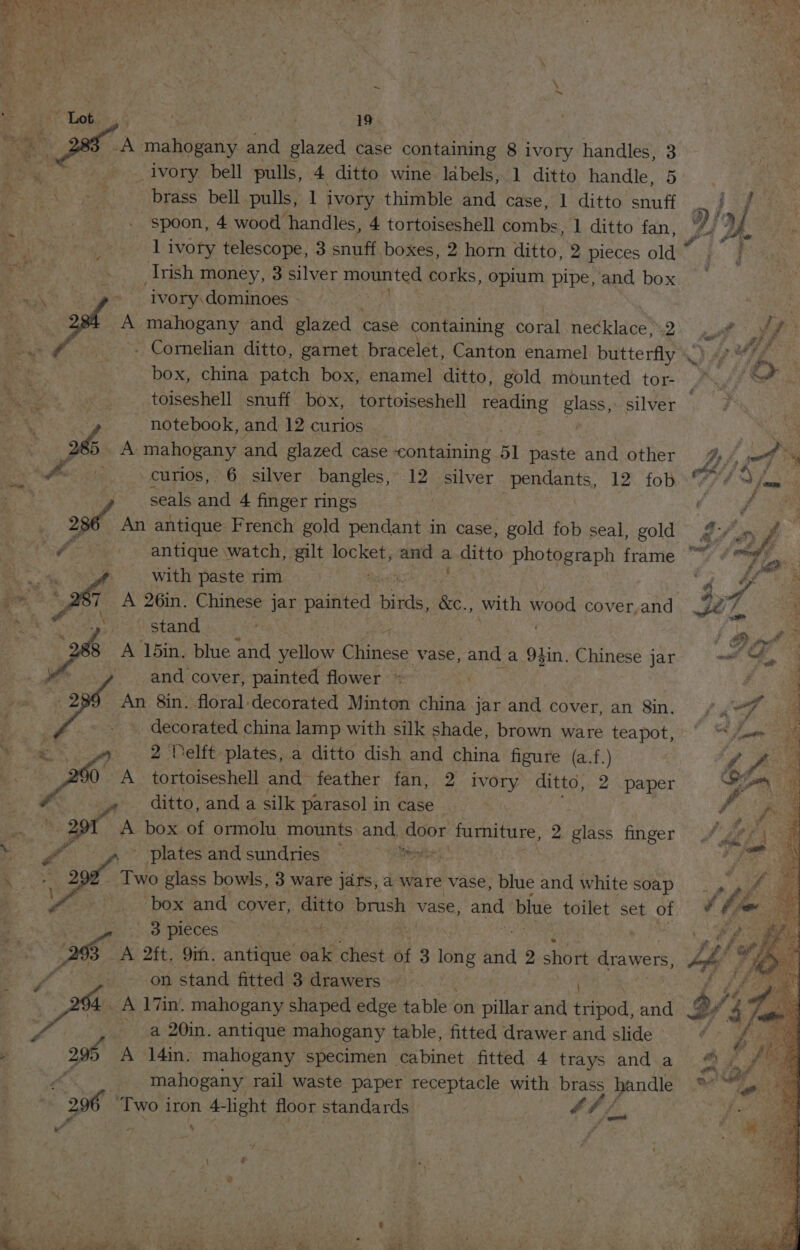 Lot 19
283 A mahogany and glazed case containing 8 ivory handles, 3
ivory bell pulls, 4 ditto wine labels, 1 ditto handle, 5
brass bell pulls, 1 ivory thimble and case, 1 ditto snuff
spoon, 4 wood handles, 4 tortoiseshell combs, 1 ditto fan,
1 ivory telescope, 3 snuff boxes, 2 horn ditto, 2 pieces old
Irish money, 3 silver mounted corks, opium pipe, and box
ivory dominoes
284 A mahogany and glazed case containing coral necklace, 2
Cornelian ditto, garnet bracelet, Canton enamel butterfly
box, china patch box, enamel ditto, gold mounted tor-
toiseshell snuff box, tortoiseshell reading glass, silver
notebook, and 12 curios
285 A mahogany and glazed case containing 51 paste and other
curios, 6 silver bangles, 12 silver pendants, 12 fob
seals and 4 finger rings
286 An antique French gold pendant in case, gold fob seal, gold
antique watch, gilt locket, and a ditto photograph frame
with paste rim
287 A 26in. Chinese jar painted birds, &c., with wood cover, and
stand
288 A 15in. blue and yellow Chinese vase, and a 9½in. Chinese jar
and cover, painted flower
289 An 8in. floral decorated Minton china jar and cover, an 8in.
decorated china lamp with silk shade, brown ware teapot,
2 Delft plates, a ditto dish and china figure (a.f.)
290 A tortoiseshell and feather fan, 2 ivory ditto, 2 paper
ditto, and a silk parasol in case
291 A box of ormolu mounts and door furniture, 2 glass finger
plates and sundries
292 Two glass bowls, 3 ware jars, a ware vase, blue and white soap
box and cover, ditto brush vase, and blue toilet set of
3 pieces
293 A 2ft. 9in. antique oak chest of 3 long and 2 short drawers,
on stand fitted 3 drawers
294 A 17in. mahogany shaped edge table on pillar and tripod, and
a 20in. antique mahogany table, fitted drawer and slide
295 A 14in. mahogany specimen cabinet fitted 4 trays and a
mahogany rail waste paper receptacle with brass handle
296 Two iron 4-light floor standards